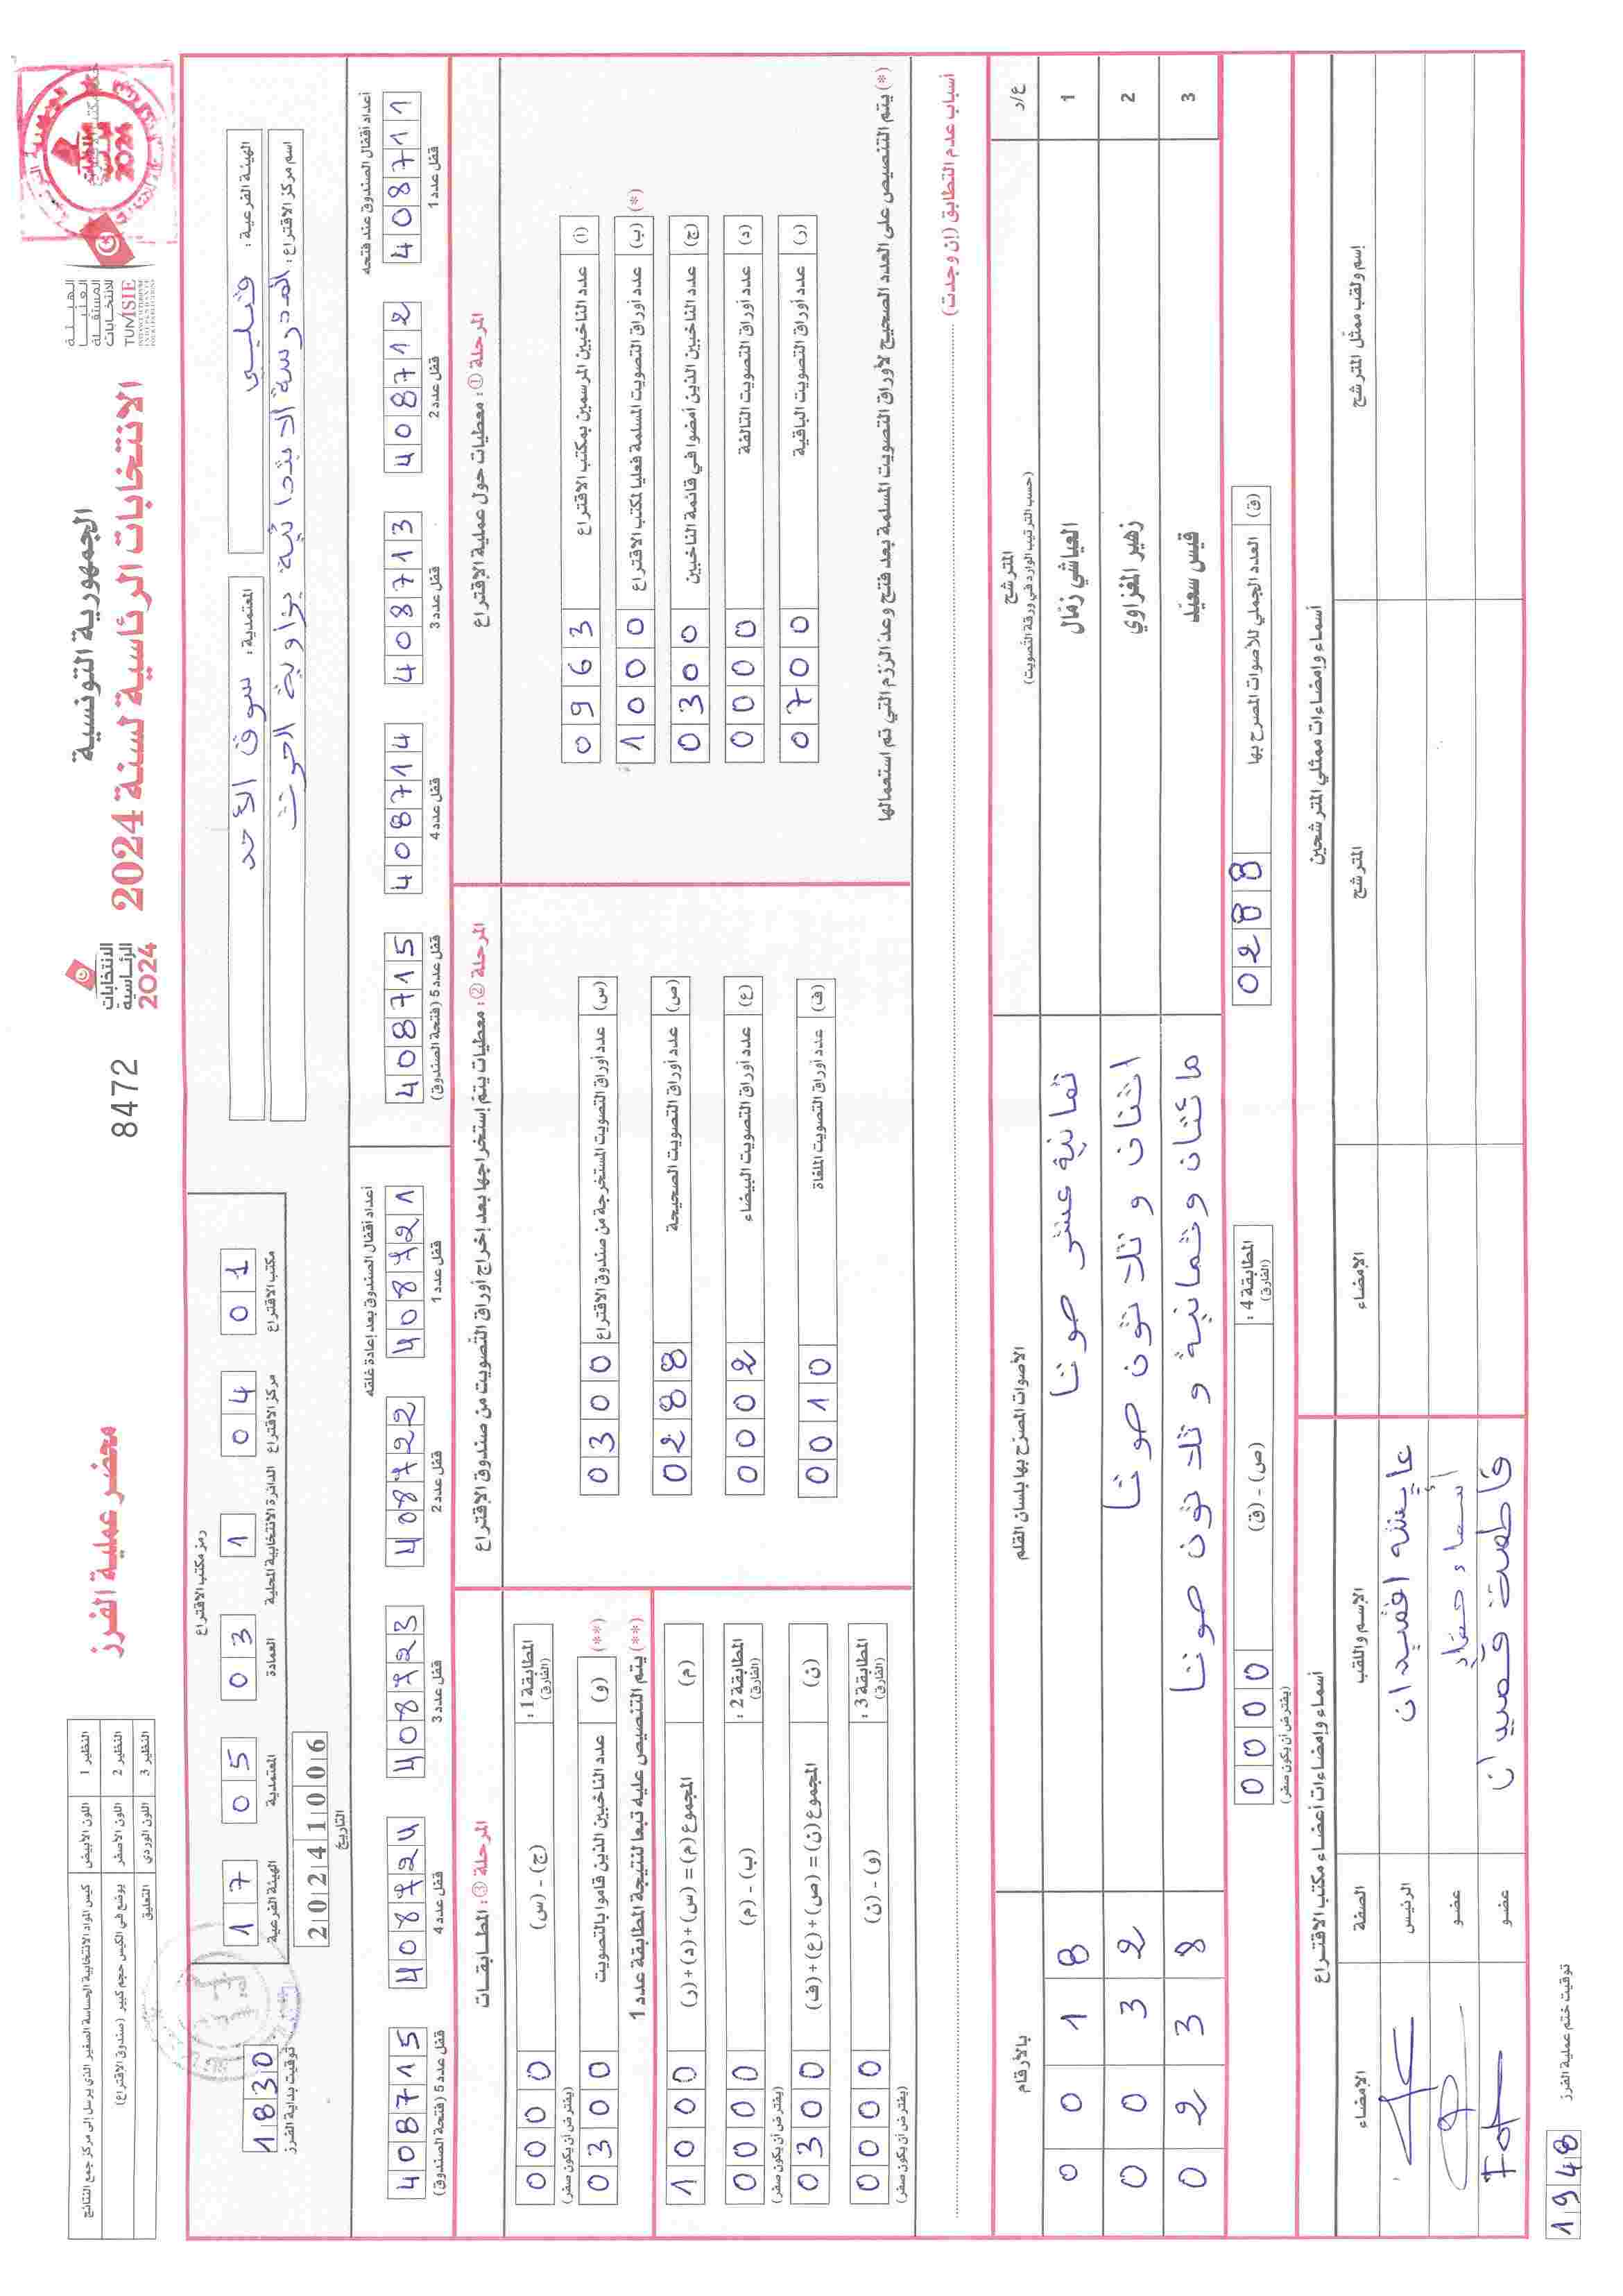 الجمهورية التونسية
الانتخابات الرئاسية لسنة 2024
محضر عملية الفرز
8472
الهيئة
العليا
المستقلة
للانتخابات
TUNISIE
الانتخابات
الرئاسية
2024
النظير 1 اللون الأبيض كيس المواد الانتخابية الحساسة الصغير الذي يرسل إلى مركز جمع النتائج
النظير 2 اللون الأصفر يوضع في الكيس حجم كبير (صندوق الاقتراع)
النظير 3 اللون الوردي التعليق
الهيئة الفرعية : قبلي
المعتمدية : سوق الأحد
اسم مركز الاقتراع : المدرسة الابتدائية بزاوية الحرث
رمز مكتب الاقتراع
17 05 03 1 04 01
الهيئة الفرعية المعتمدية العمادة الدائرة الانتخابية المحلية مركز الاقتراع مكتب الاقتراع
20241006
التاريخ
1830
توقيت بداية الفرز
أعداد أقفال الصندوق عند فتحه
408711 408712 408713 408714 408715
قفل عدد 1 قفل عدد 2 قفل عدد 3 قفل عدد 4 قفل عدد 5 (فتحة الصندوق)
أعداد أقفال الصندوق بعد إعادة غلقه
408721 408722 408723 408724 408715
قفل عدد 1 قفل عدد 2 قفل عدد 3 قفل عدد 4 قفل عدد 5 (فتحة الصندوق)
المرحلة ① : معطيات حول عملية الإقتراع
(أ) عدد الناخبين المرسمين بمكتب الاقتراع 0963
(*) (ب) عدد أوراق التصويت المسلمة فعليا لمكتب الاقتراع 1000
(ج) عدد الناخبين الذين أمضوا في قائمة الناخبين 0300
(د) عدد أوراق التصويت التالفة 0000
(ر) عدد أوراق التصويت الباقية 0700
(*) يتم التنصيص على العدد الصحيح لأوراق التصويت المسلمة بعد فتح وعدّ الرزم التي تم استعمالها
المرحلة ② : معطيات يتم إستخراجها بعد إخراج أوراق التصويت من صندوق الإقتراع
(س) عدد أوراق التصويت المستخرجة من صندوق الاقتراع 0300
(ص) عدد اوراق التصويت الصحيحة 0288
(ع) عدد أوراق التصويت البيضاء 0002
(ف) عدد اوراق التصويت الملغاة 0010
المرحلة ③ : المطابقات
المطابقة 1 : (الفارق) (ج) - (س) 0000
(يفترض أن يكون صفر)
(**) (و) عدد الناخبين الذين قاموا بالتصويت 0300
(**) يتم التنصيص عليه تبعا لنتيجة المطابقة عدد 1
(م) المجموع (م) = (س) + (د) + (ر) 1000
المطابقة 2 : (الفارق) (ب) - (م) 0000
(يفترض أن يكون صفر)
(ن) المجموع (ن) = (ص) + (ع) + (ف) 0300
المطابقة 3 : (الفارق) (و) - (ن) 0000
(يفترض أن يكون صفر)
أسباب عدم التطابق (إن وجدت)
ع/ر المترشح (حسب الترتيب الوارد في ورقة التصويت) الأصوات المصرّح بها بلسان القلم بالأرقام
1 العياشي زمّال ثمانية عشر صوتا 0018
2 زهير المغزاوي اثنان و ثلاثون صوتا 0032
3 قيس سعيّد مائتان وثمانية و ثلاثون صوتا 0238
(ق) العدد الجملي للأصوات المصرح بها 0288
المطابقة 4 : (الفارق) (ص) - (ق) 0000
(يفترض أن يكون صفر)
أسماء وإمضاءات ممثلي المترشحين
إسم ولقب ممثل المترشح المترشح الإمضاء
أسماء وإمضاءات أعضاء مكتب الاقتراع
الإسم واللقب الصفة الإمضاء
عايشة افضيدان الرئيس
أسماء حمّاد عضو
فاطمة قصيدان عضو
توقيت ختم عملية الفرز
1948